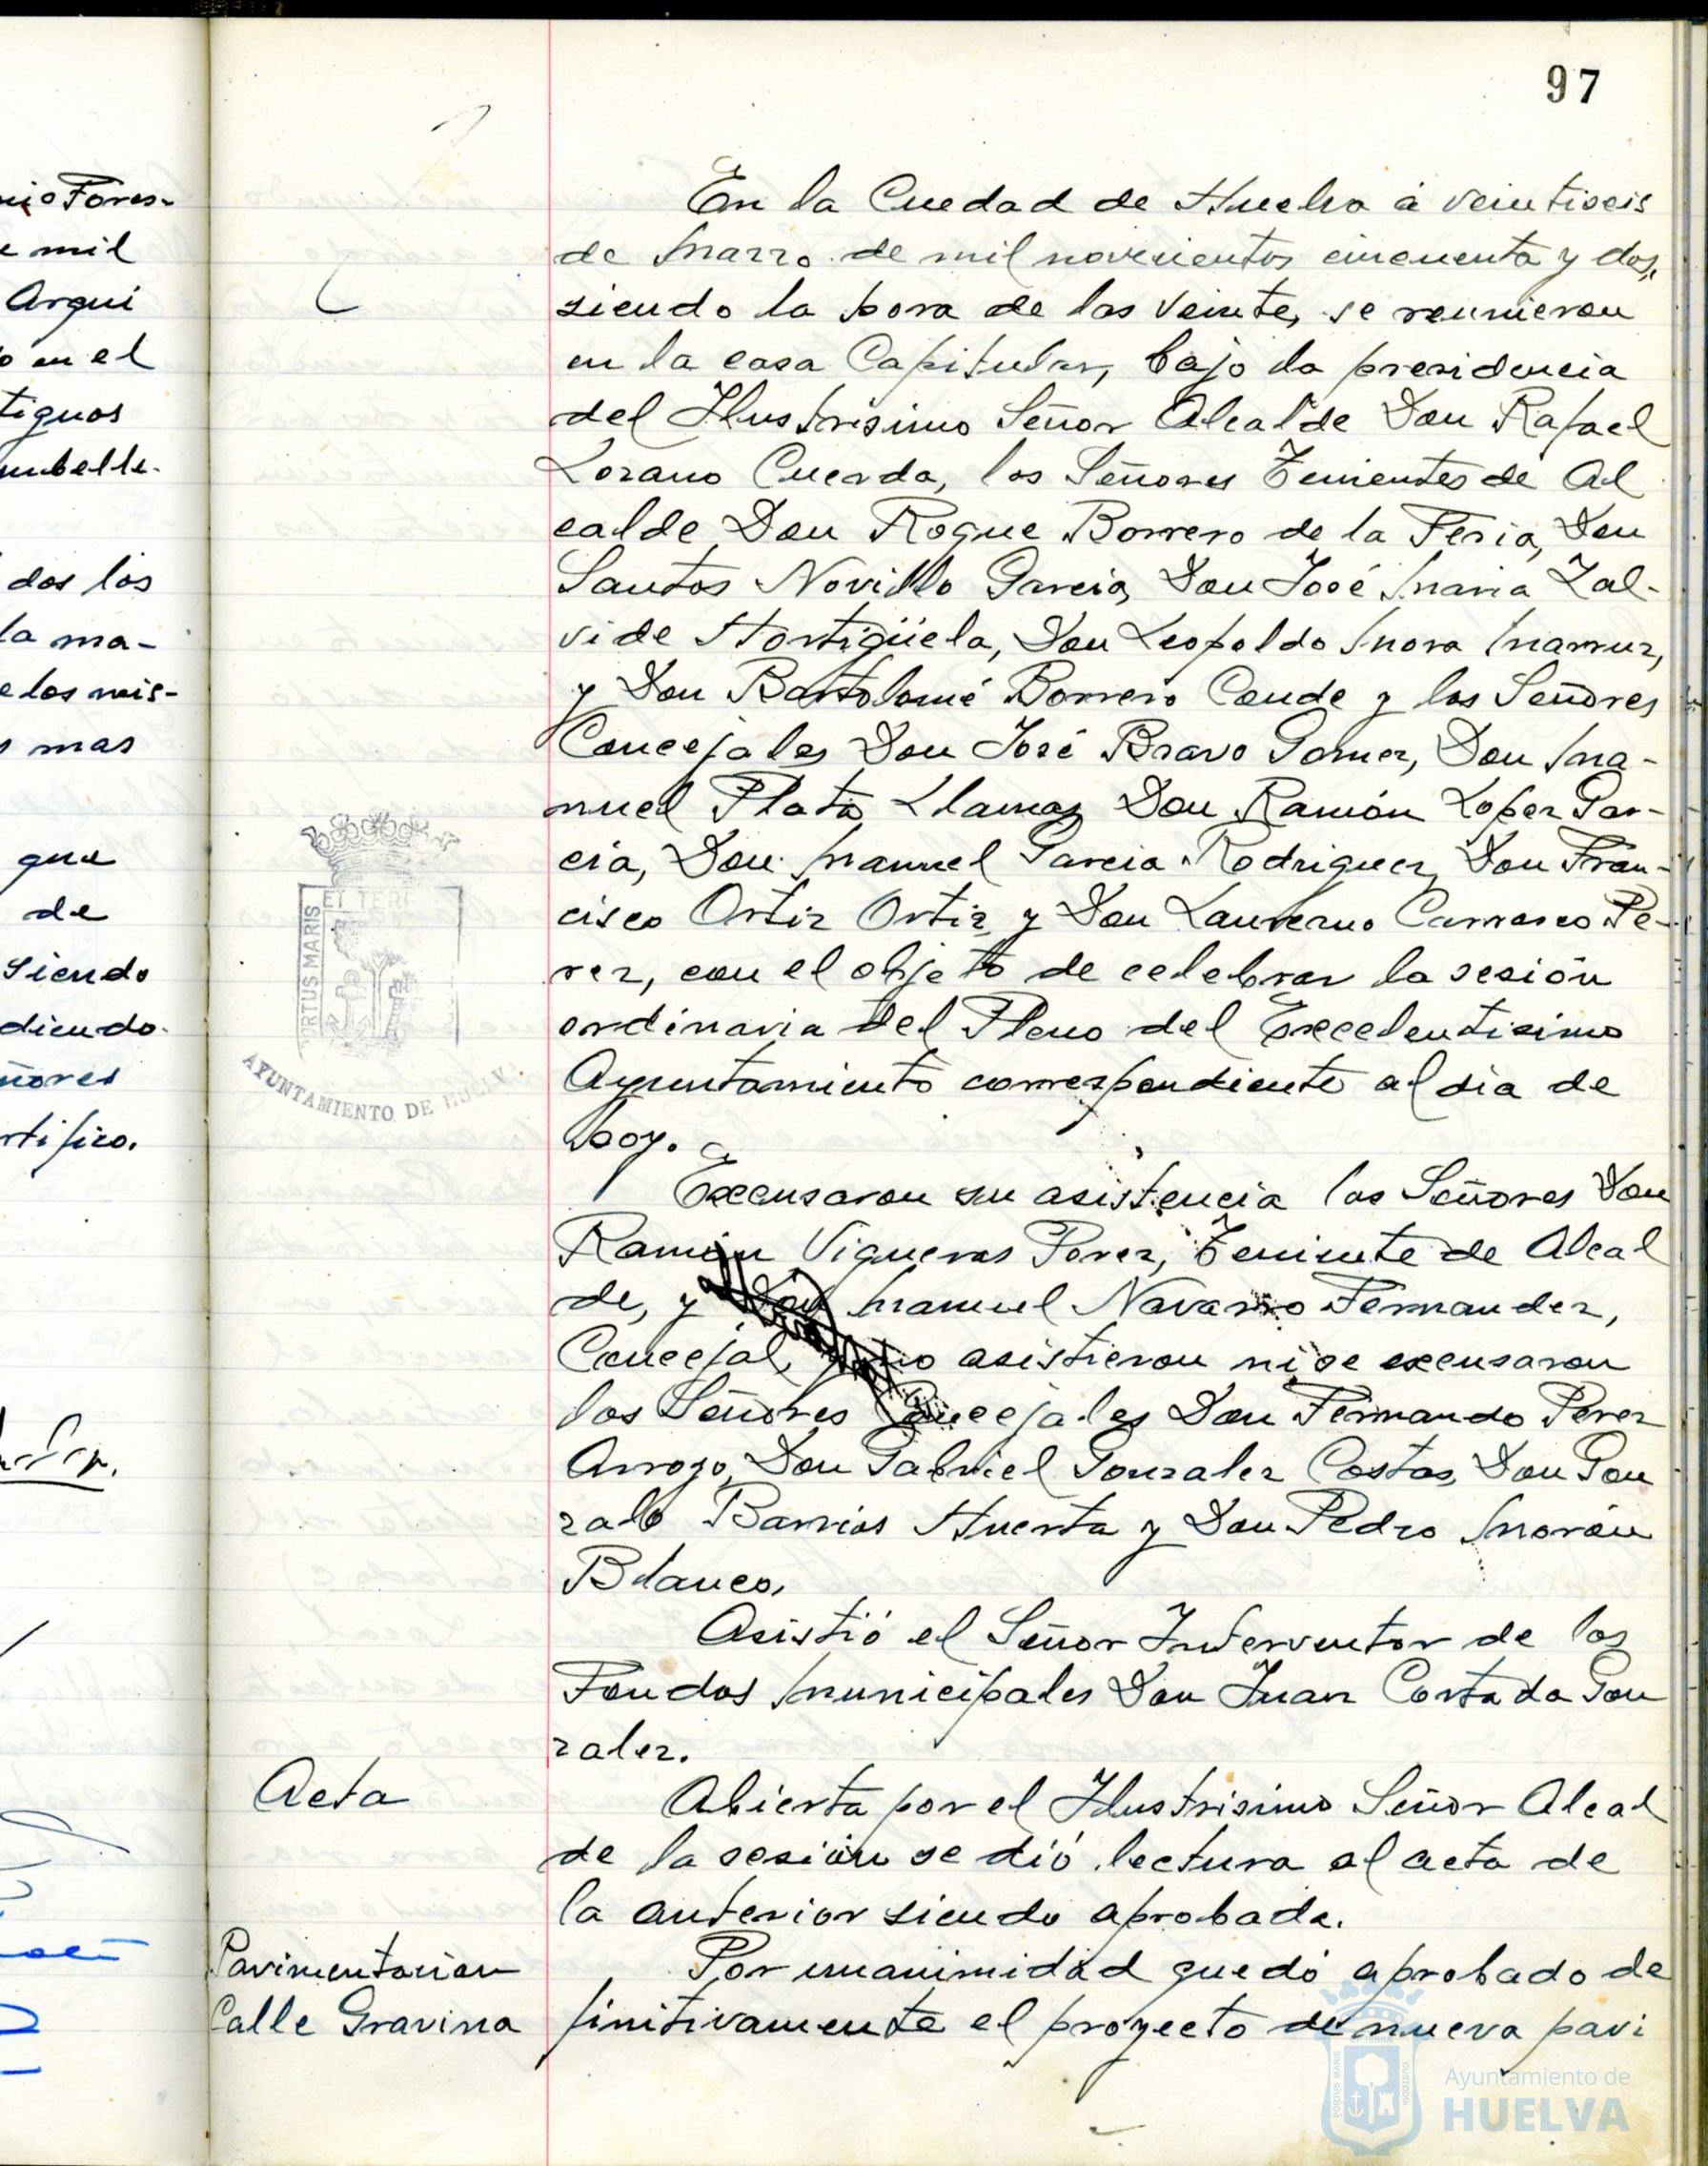 97
nio Fores-
e mil
Arqui
o en el
tiguos
mbelle-
dos los
la ma-
e los mis-
s mas
que
de
siendo
diendo
ñores
rtifico.
En la Cuedad de Huelva a veintiseis
de Marzo de mil novecientos cincuenta y dos,
siendo la hora de las veinte, se reunieron
en la casa Capitular, bajo la presidencia
del Ilustrisimo Señor Alcalde Don Rafael
Lozano Cuerda, los Señores Tenientes de Al
calde Don Roque Borrero de la Feria, Don
Santos Novillo Garcia, Don José Maria Zal-
vide Hortigüela, Don Leopoldo Mora Marruz,
y Don Bartolomé Borrero Conde y los Señores
Concejales Don José Bravo Gomez, Don Ma-
nuel Plata Llamas Don Ramón Lopez Gar-
cia, Don Manuel Garcia Rodriguez, Don Fran-
cisco Ortiz Ortiz y Don Carrasco Pe-
rez, con el objeto de celebrar la sesión
ordinaria del Pleno del Excelentisimo
Ayuntamiento correspondiente al dia de
hoy.
Excusaron su asistencia los Señores Don
Ramón Vigueras Perez, Teniente de Alcal
de, y Don Manuel Navarro Fernandez,
Concejal, y no asistieron ni se excusaron
los Señores Concejales Don Fernando Perez
Arroyo, Don Gabriel Gonzalez Costas, Don Gon
zalo Barrios Huerta y Don Pedro Morón
Blanco.
Asistió el Señor Interventor de los
Fondos Municipales Don Juan Cortada Gon
zalez.
Acta
Abierta por el Ilustrisimo Señor Alcal
de la sesión se dió lectura al acta de
la anterior siendo aprobada.
Pavimentación
Calle Gravina
Por unanimidad quedó aprobado de
finitivamente el proyecto de nueva pavi
ET TERR
PORTUS MARIS
AYUNTAMIENTO DE HUELVA
Ayuntamiento de
HUELVA